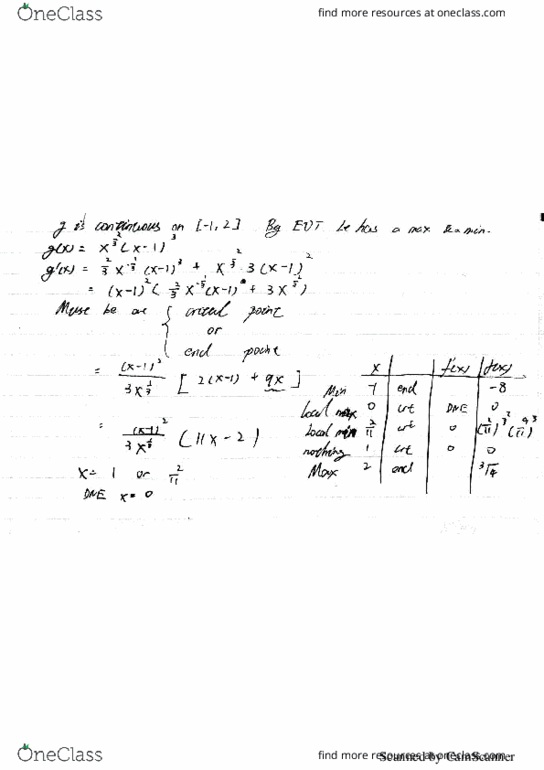 OneClass
find more resources at oneclass.com
g is continuous on [-1, 2] By EVT he has a max & a min.
g(x) = x^{2/3} (x-1)^3
g'(x) = 2/3 x^{-1/3} (x-1)^3 + x^{2/3} 3 (x-1)^2
= (x-1)^2 ( 2/3 x^{-1/3} (x-1) + 3x^{2/3} )
Must be at { critical point
or
end point
= (x-1)^2 / 3x^{1/3} [ 2(x-1) + 9x ]
= (x-1)^2 / 3x^{1/3} (11x - 2)
x = 1 or 2/11
DNE x = 0
x f'(x) f(x)
Min -1 end -8
local max 0 crt DNE 0
local min 2/11 crt 0
nothing 1 crt 0 0
Max 2 end ³√4
OneClass
find more resources at oneclass.com
Scanned by CamScanner